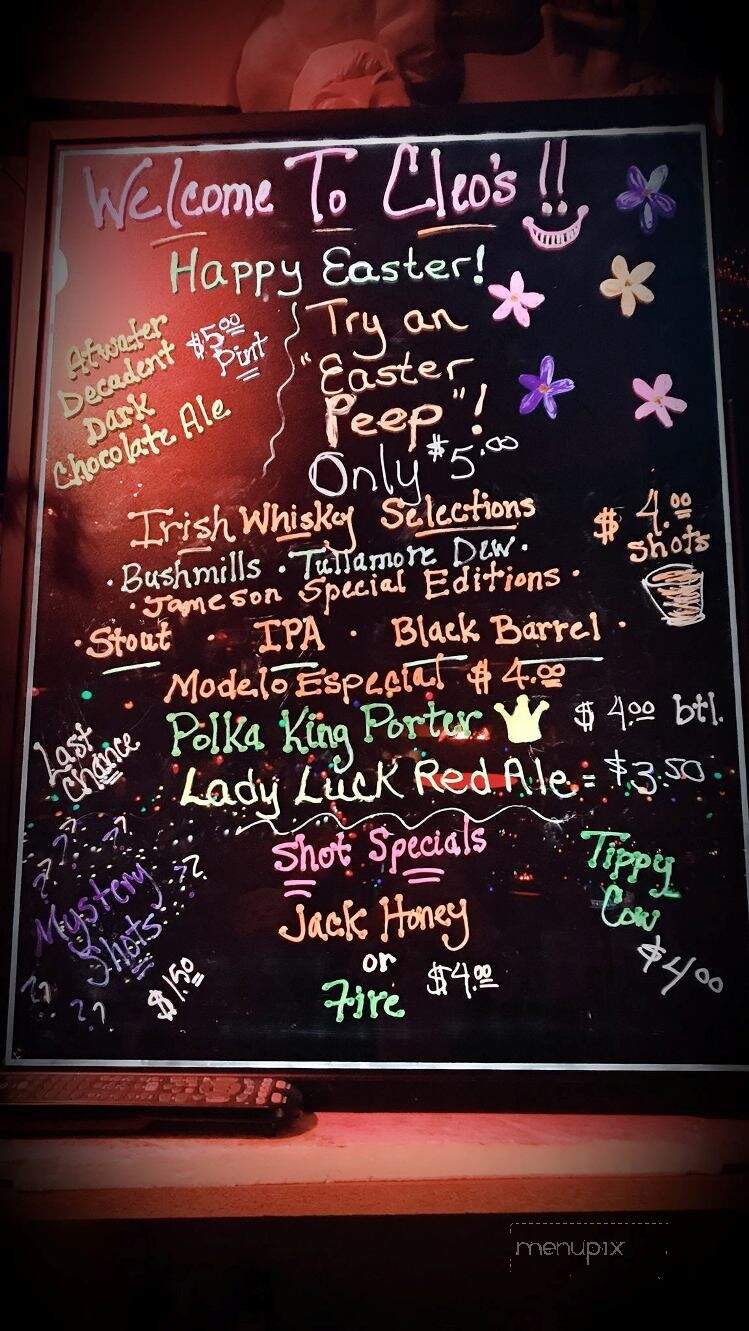 Welcome To Cleo's!!
Happy Easter!
Atwater
Decadent
Dark
Chocolate Ale
$5.00
Pint
Try an
"Easter
Peep"!
Only $5.00
Irish Whiskey Selections
$4.00
shots
· Bushmills · Tullamore Dew ·
· Jameson Special Editions ·
· Stout · IPA · Black Barrel ·
Modelo Especial $4.00
Last
Chance
Polka King Porter $4.00 btl.
Lady Luck Red Ale = $3.50
?? ?? ?? ??
Mystery
Shots
?? ??
$1.50
Shot Specials
Jack Honey
or
Fire
$4.00
Tippy
Cow
$4.00
menupix